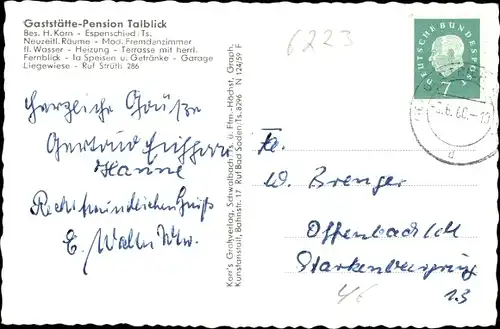 Gaststätte-Pension Talblick
Bes. H. Korn - Espenschied/Ts.
Neuzeitl. Räume - Mod. Fremdenzimmer
fl. Wasser - Heizung - Terrasse mit herrl.
Fernblick - Ia Speisen u. Getränke - Garage
Liegewiese - Ruf Strüth 286
6223
DEUTSCHE BUNDESPOST
7
Herzliche Grüße
Gertrud Eichhorn
Hanne
Recht freundlichen Gruß
E. Walter
Korr's Grafverlag, Schwalbach/Ts. u. Ffm.-Höchst, Graph.
Kunstanstalt, Bahnstr. 17 Ruf Bad Soden/Ts. 8296 N 124/59 F
W. Brenger
Offenbach/M
Starkenburgring
13